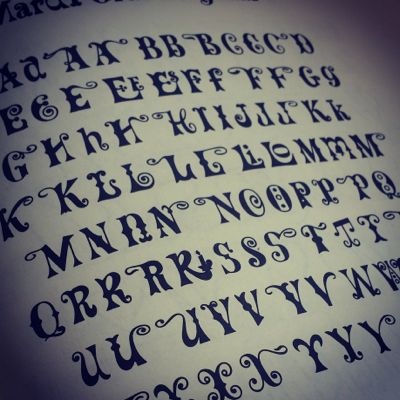 Mardi
AaAA BBBCCCD
EeE EEEFf FFGG
G HhH HIIJJJKk
K KLL LL LOMMM
MNNN NOOPP PQ
QRRRRSSS TTT
UU UUVVVW
XXX YYYY